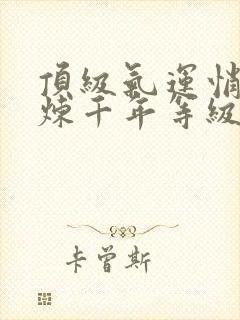 頂級氣運悄
煉千年等級
卡曾斯